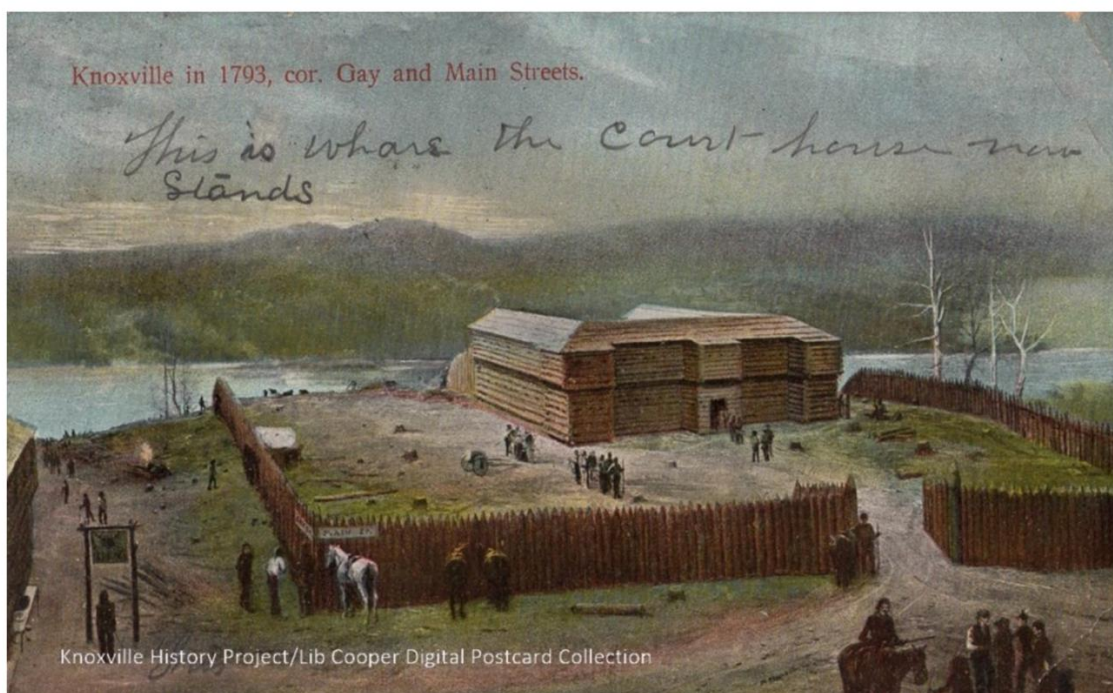 Knoxville in 1793, cor. Gay and Main Streets.
This is whare the Court house now
Stands
MAIN ST.
Knoxville History Project/Lib Cooper Digital Postcard Collection